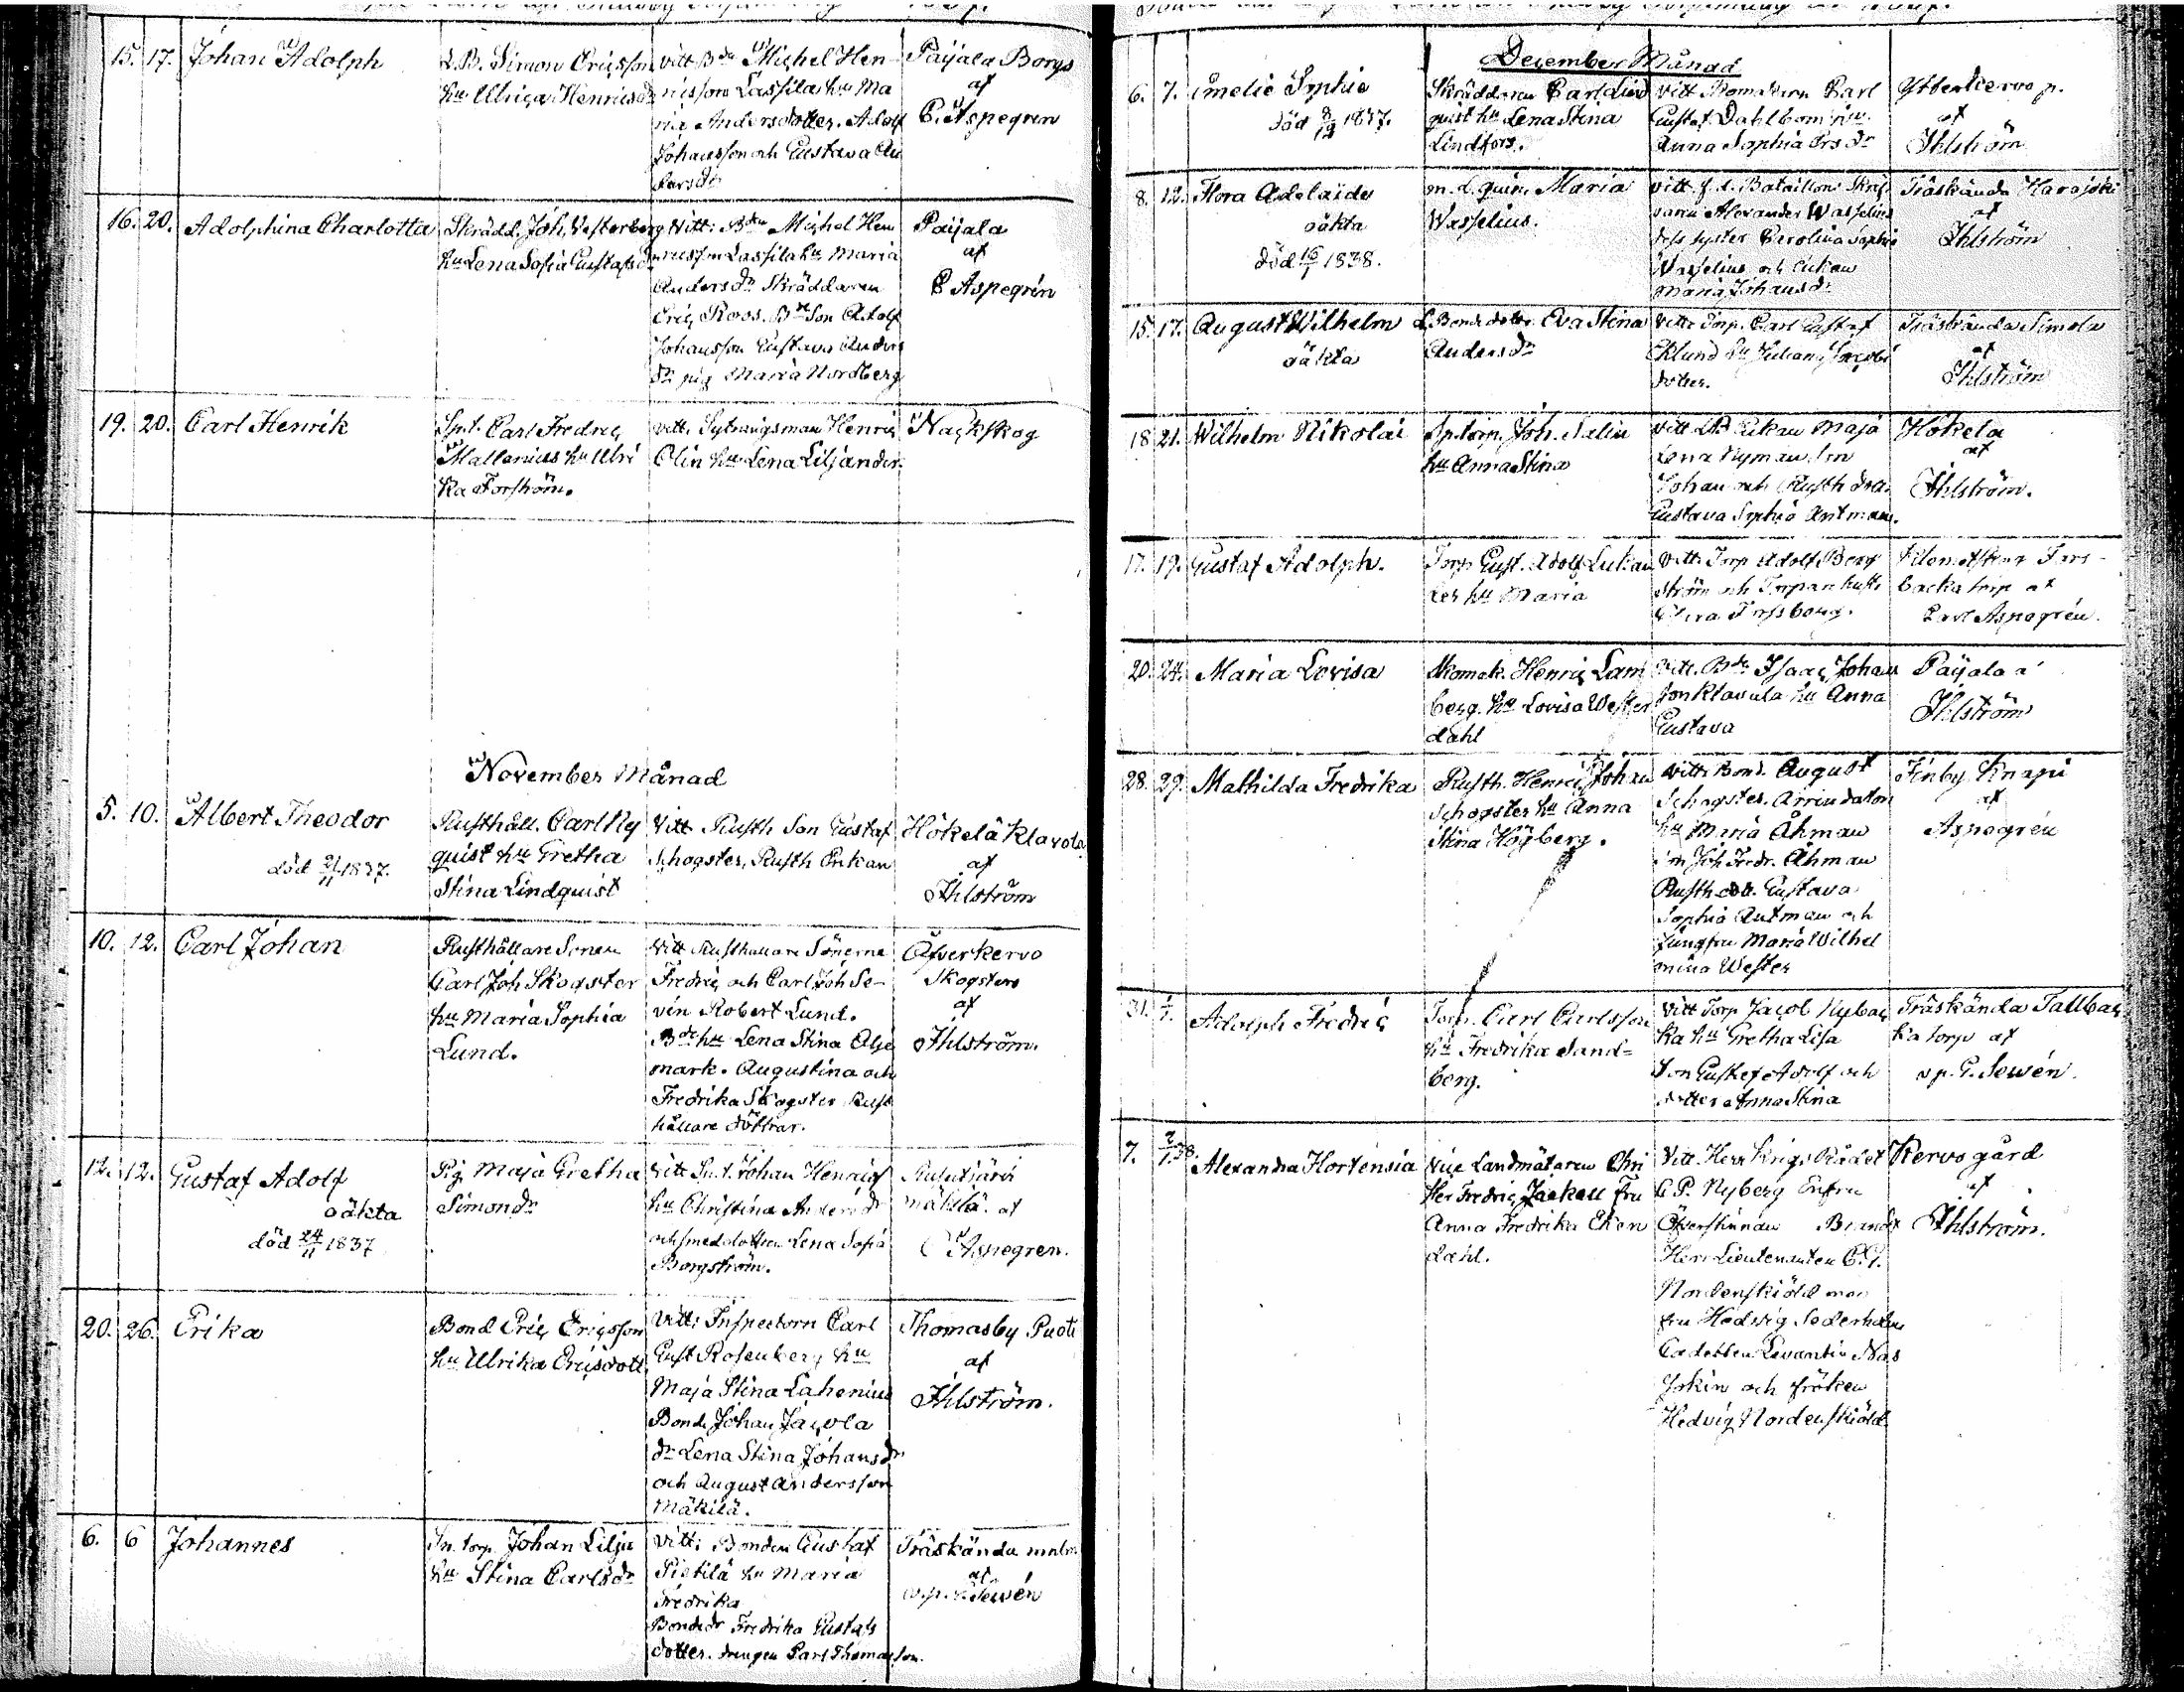 15. 17. Johan Adolph
L.B. Simon Ericsson
hu Ulrica Henricsdr
vitt Bdn Michel Hen
ricsson Lassila hu Ma
ria Andersdotter. Adolf
Johansson och Gustava An
dersdr
Paijala Borgs
af
C. Aspegren
16. 20. Adolphina Charlotta
Skrädd. Joh. Vesterberg
hu Lena Sofia Gustafsdr
Vitt: Bdn Michel Hen
ricsson Lassila hu Maria
Andersdr Skräddaren
Eric Roos. Bde Son Adolf
Johansson Gustava Anders
dr pig Maria Nordberg
Paijala
af
C Aspegrén
19. 20. Carl Henrik
Spl. Carl Fredric
Mallenius hu Ulri
ka Forström.
vitt. Sytningsman Henric
Olin hu Lena Liljander.
Nackskog
November Månad
5. 10. Albert Theodor
död 21/11 1837.
Rusthåll. Carl Ny
quist hu Gretha
Stina Lindquist
Vitt Rusth Son Gustaf
Schogster, Rusth Enkan
Hökelä Klavola
af
Ihlström
10. 12. Carl Johan
Rusthållare Sonen
Carl Joh Skogster
hu Maria Sophia
Lund.
Vitt Rusthållare Sönerne
Fredric och Carl Joh Se-
vén Robert Lund.
Bde hu Lena Stina Alje
mark. Augustina och
Fredrika Skogster Rust
hållare döttrar.
Öfverkervo
Skogsters
af
Ihlström.
12. 12. Gustaf Adolf
oäkta
död 24/11 1837
Pig Maja Gretha
Simonsdr
vitt Johan Henrics
hu Christina Andersdr
och smeddottren Lena Sofia
Borgström.
Rusutjärvi
mäkilä. af
C Aspegren.
20. 26. Erika
Bond Eric Ericsson
hu Ulrika Ericsdott
Vitt: Inspectorn Carl
Gust Rosenberg hu
Maja Stina Lahenius
Bond. Johan Jacola
dr Lena Stina Johansdr
och August Andersson
Mäkilä.
Thomasby Puoti
af
Ihlström.
6. 6 Johannes
In. torp. Johan Lilja
hu Stina Carlsdr
Vitt: Bonden Gustaf
Pietilä hu Maria
Fredrika
Bondedr Fredrika Gustafs
dotter. drengen Carl Thomasson.
Träskända malm
af
v.p. Sewén
December Månad
6. 7. Emelie Sophie
död 8/12 1837.
Skräddaren Carl Lind
quist hu Lena Stina
Lindfors.
vitt Skomakarn Carl
Gustaf Dahlbom
Anna Sophia Ersdr
Ytterkervo p.
af
Ihlström
8. 12. Flora Adelaide
oäkta
död 16/1 1838.
m. l. quin. Maria
Wasselius.
vitt. f. d. Bataillons Skrif
varen Alexander Wasselius
dess syster Carolina Sophie
Wasselius och Enkan
Maria Johansdr
Träskända Harajoki
af
Ihlström
15. 17. August Wilhelm
oäkta
L. Bonde dotter Eva Stina
Andersdr
Vitt: Torp. Carl Gustaf
Eklund hu Juliana Jacobs
dotter.
Träskända Simola
af
Ihlström
18 21. Wilhelm Nikolai
Sp. torp. Joh. Salin
hu Anna Stina
Vitt LB Enkan Maja
Lena Nyman, son
Johan och Rusth dr
Gustava Sophia Antman.
Hökela
af
Ihlström.
17. 19. Gustaf Adolph.
Torp Gust. Adolf Lukan
der hu Maria
Vitt: Torp Adolf Berg
ström och Torpan hustr
Torssberg.
Fors-
backa torp af
Carl Aspegrén.
20. 24. Maria Lovisa
Skomak. Henric Lam
berg. hu Lovisa Wester
dahl
Vitt. Bdn Isaac Johan
son Klavula hu Anna
Gustava
Paijala a
Ihlström
28. 29. Mathilda Fredrika
Rusth. Henric Johan
Schogster hu Anna
Stina Högberg.
Vitt: Bond. August
Schogster. Arrendatorn
hu Maria Åhman
Joh Fredr. Åhman
Rusth dott. Gustava
Sophia Antman och
Jungfru Maria Wilhel
mina Wester
Finby Knapi
af
Aspegrén
31. 1/1. Adolph Fredric
Torp. Carl Carlsson
hu Fredrika Sand=
berg.
Vitt Torp Jacob Nybac
ka hu Gretha Lisa
Son Gustaf Adolf och
dotter Anna Stina
Träskända Tallbac
ka torp af
v.p. G. Sewén.
7. 7/1.38. Alexandra Hortensia
Vice Landmätaren Chri
ster Fredric Jäckell Fru
Anna Fredrika Eken
dahl.
Vitt. Herr Krigs Rådet
C P. Nyberg Enfru
Öfverskinnan Brandt
Herr Lieutenanten C. G.
Nordenskiöld mor
fru Hedvig Soderholm
Cadetten Levantin Nas
Jokin och fröken
Hedvig Nordenskiöld
Kervo gård
af
Ihlström.